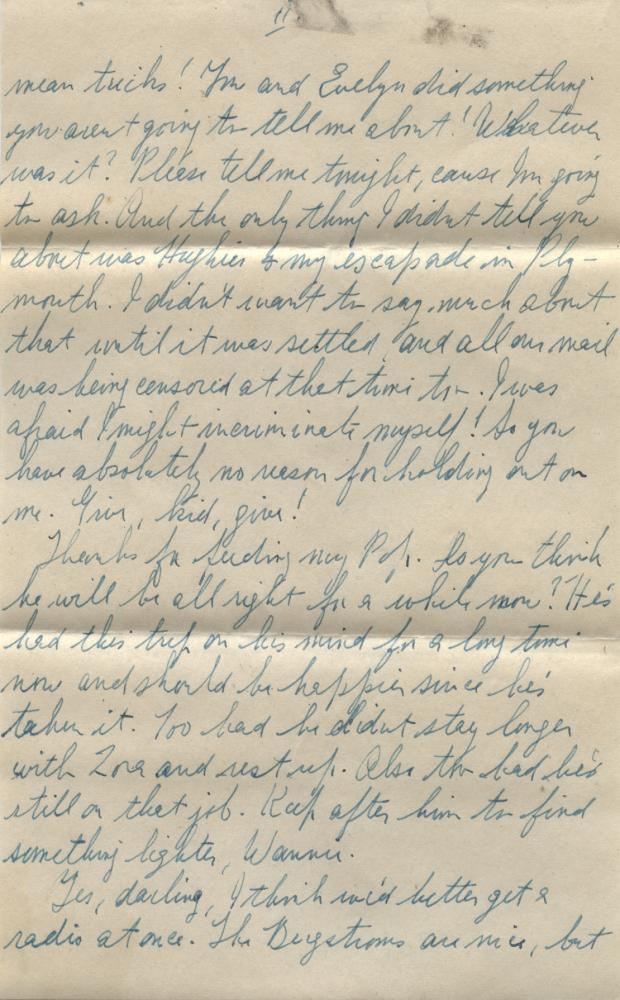 11
mean tricks! You and Evelyn did something
you aren't going to tell me about! Whatever
was it? Please tell me tonight, cause Im going
to ask. And the only thing I didn't tell you
about was Hughies & my escapade in Ply-
mouth. I didn't want to say much about
that until it was settled, and all our mail
was being censored at that time too. I was
afraid I might incriminate myself! So you
have absolutely no reason for holding out on
me. Give, kid, give!
Thanks for feeding my Pop. Do you think
he will be all right for a while now? He's
had this trip on his mind for a long time
now and should be happier since he's
taken it. Too bad he didn't stay longer
with Zora and rest up. Also too bad he's
still on that job. Keep after him to find
something lighter, Wannie.
Yes, darling, I think we'd better get a
radio at once. The Bergstroms are nice, but